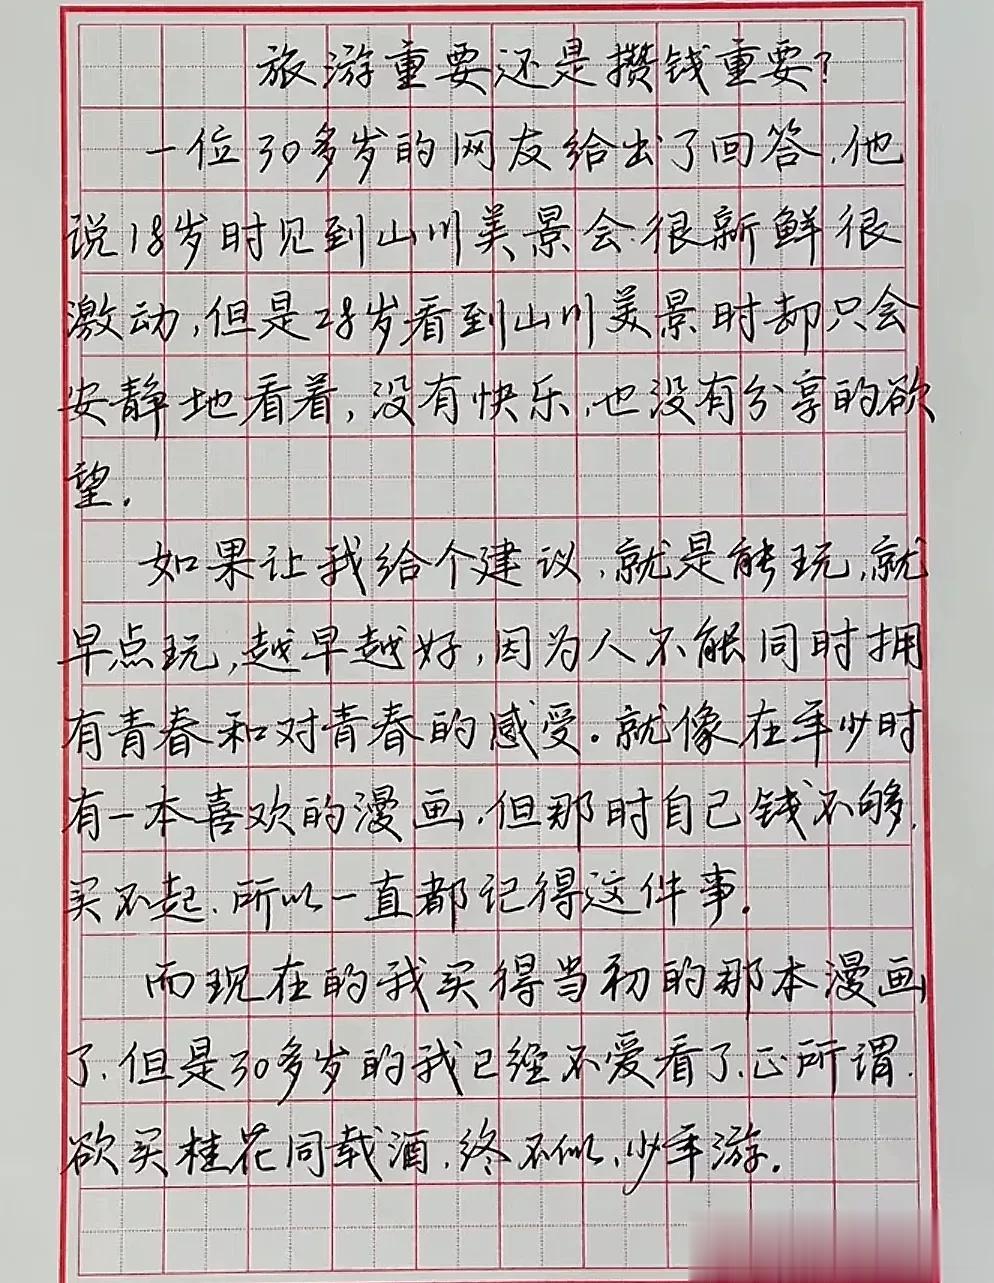 旅游重要还是攒钱重要?
一位30多岁的网友给出了回答,他
说18岁时见到山川美景会很新鲜很
激动,但是28岁看到山川美景时却只会
安静地看着,没有快乐,也没有分享的欲
望.
如果让我给个建议,就是能玩,就
早点玩,越早越好,因为人不能同时拥
有青春和对青春的感受。就像在年少时
有一本喜欢的漫画,但那时自己钱不够,
买不起,所以一直都记得这件事.
而现在的我买得当初的那本漫画
了,但是30多岁的我已经不爱看了,正所谓,
欲买桂花同载酒,终不似,少年游.